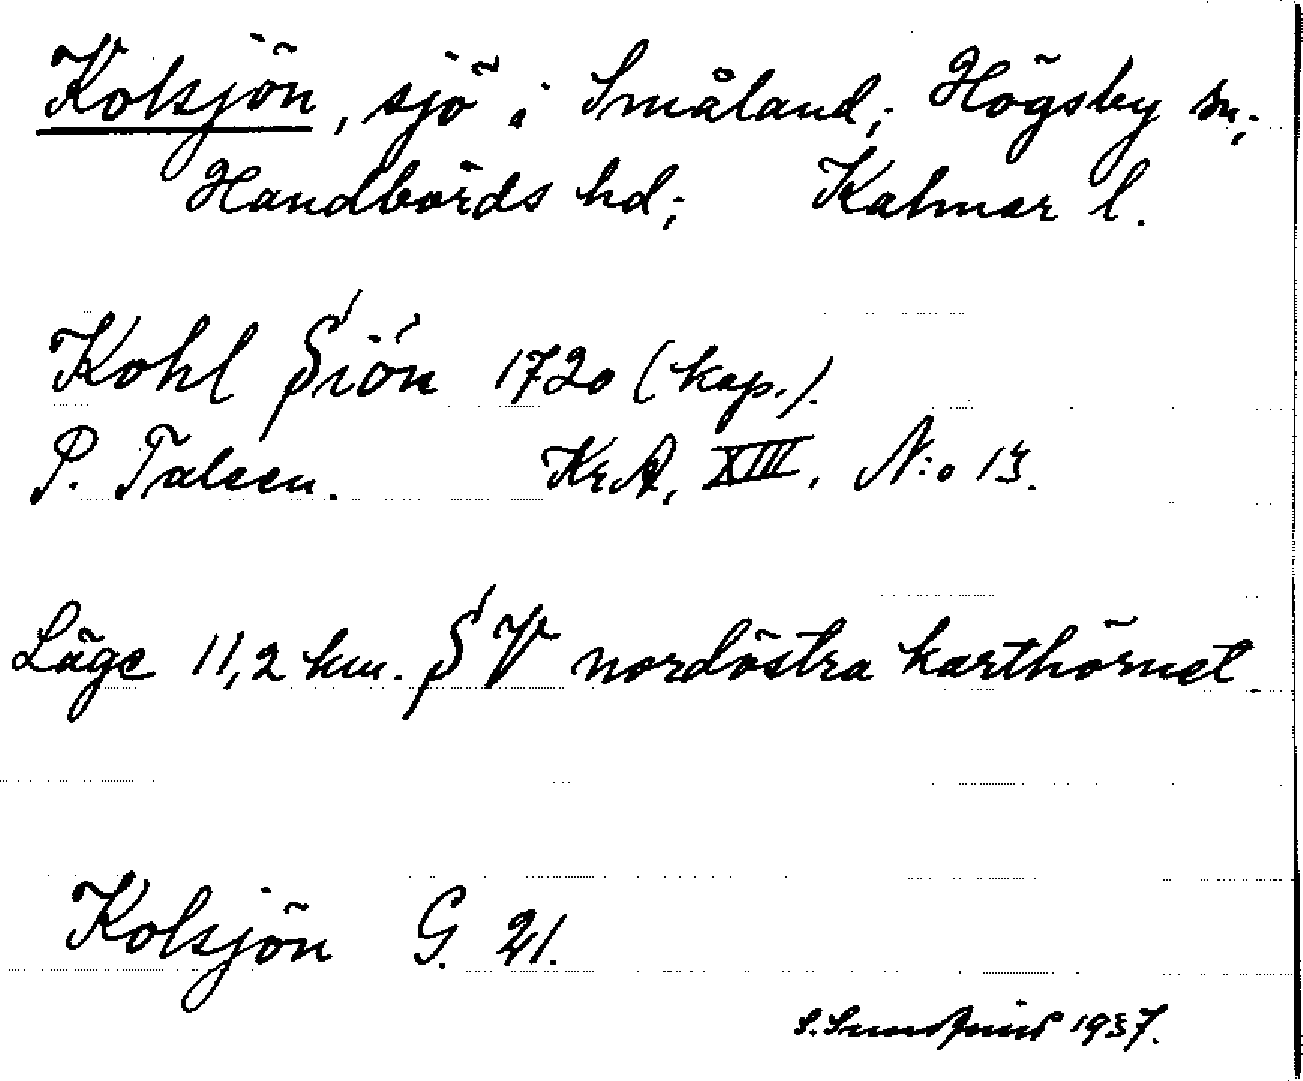 Kolsjön, sjö i Småland; Högsby sn;
Handbörds hd; Kalmar l.
Kohl Siön 1720 (kop.).
P. Talsen. KrA, XIII, N:o 13.
Läge 11,2 km. SV nordöstra karthörnet.
Kolsjön G. 21.
S. 1937.